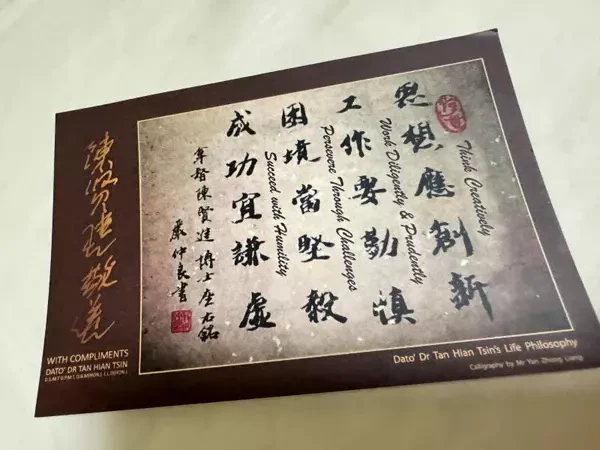 思想應創新
Think Creatively
工作要勤慎
Work Diligently & Prudently
困境當堅毅
Persevere Through Challenges
成功宜謙虛
Succeed with Humility
拿督陳賢進博士座右銘
嚴仲良書
陳賢進敬送
WITH COMPLIMENTS
DATO' DR TAN HIAN TSIN
Dato' Dr Tan Hian Tsin's Life Philosophy
Calligraphy by Mr Yan Zhong Liang